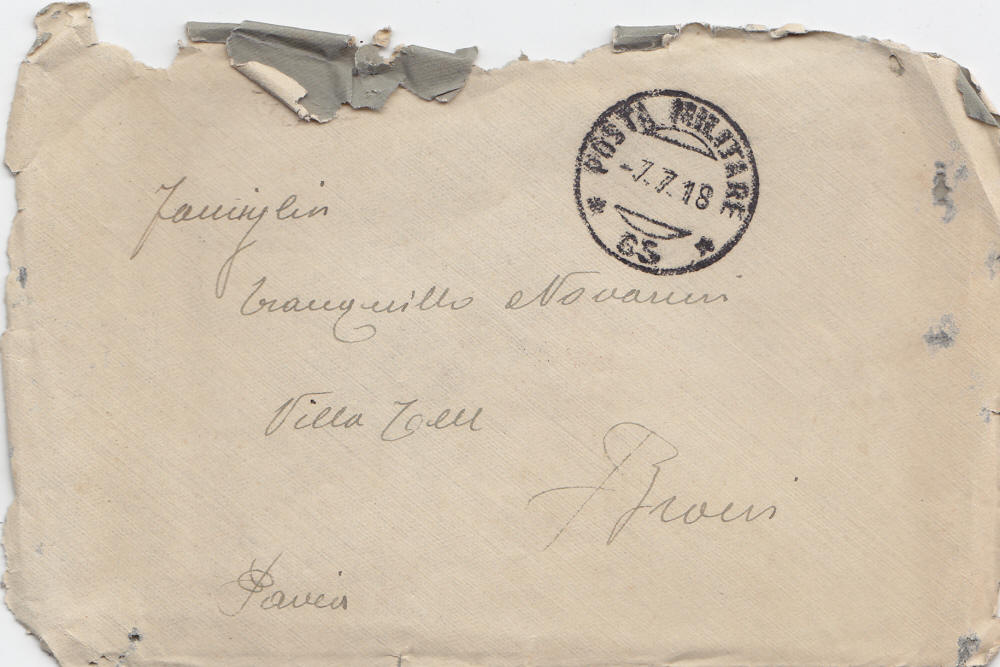 POSTA MILITARE
-7.7.18
* 65 *
Famiglia
Tranquillo Novarini
Villa Tell
Broni
Pavia